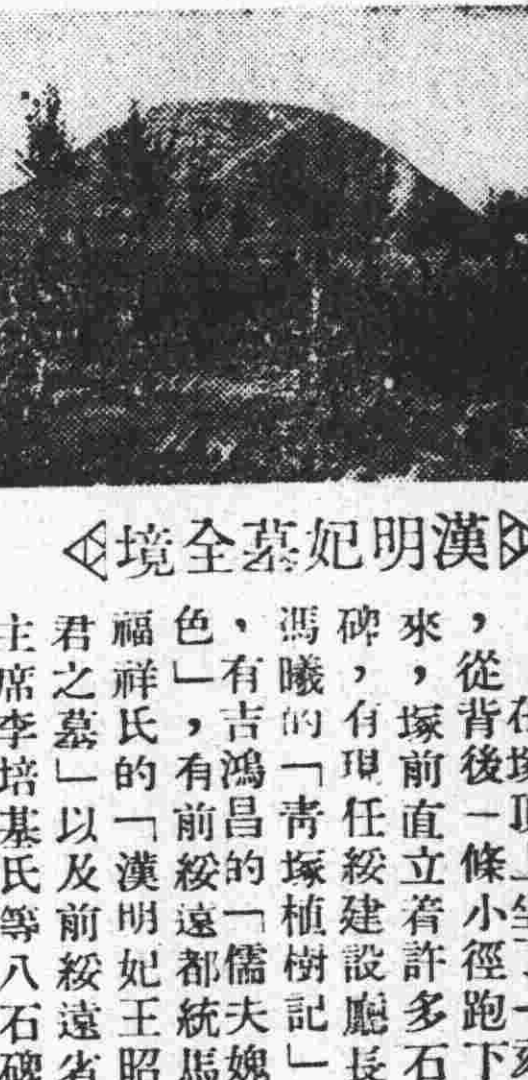 漢明妃墓全境
，從背後一條小徑跑下
來，塚前直立着許多石
碑，有現任綏建設廳長
馮曦的「青塚植樹記」
，有吉鴻昌的「儒夫媿
色」，有前綏遠都統馬
福祥氏的「漢明妃王昭
君之墓」以及前綏遠省
主席李培基氏等八石碑